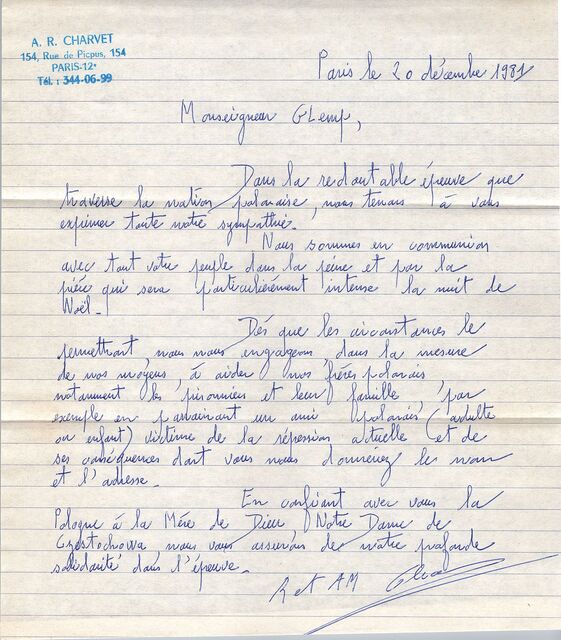 A. R. CHARVET
154, Rue de Picpus, 154
PARIS-12e
Tél. : 344-06-99
Paris le 20 décembre 1981
Monseigneur GLemp,
Dans la redoutable épreuve que
traverse la nation polonaise, nous tenons à vous
exprimer toute notre sympathie.
Nous sommes en communion
avec tout votre peuple dans la peine et par la
prière qui sera particulièrement intense la nuit de
Noël.
Dés que les circonstances le
permettront, nous nous engageons, dans la mesure
de nos moyens, à aider nos frères polonais
notamment les prisonniers et leur famille, par
exemple en parrainant un ami polonais (adulte
ou enfant) victime de la répression actuelle et de
ses conséquences dont vous nous donneriez le nom
et l'adresse.
En confiant avec vous la
Pologne à la Mère de Dieu Notre Dame de
Czestochowa, nous vous assurons de notre profonde
solidarité dans l'épreuve.
R et AM